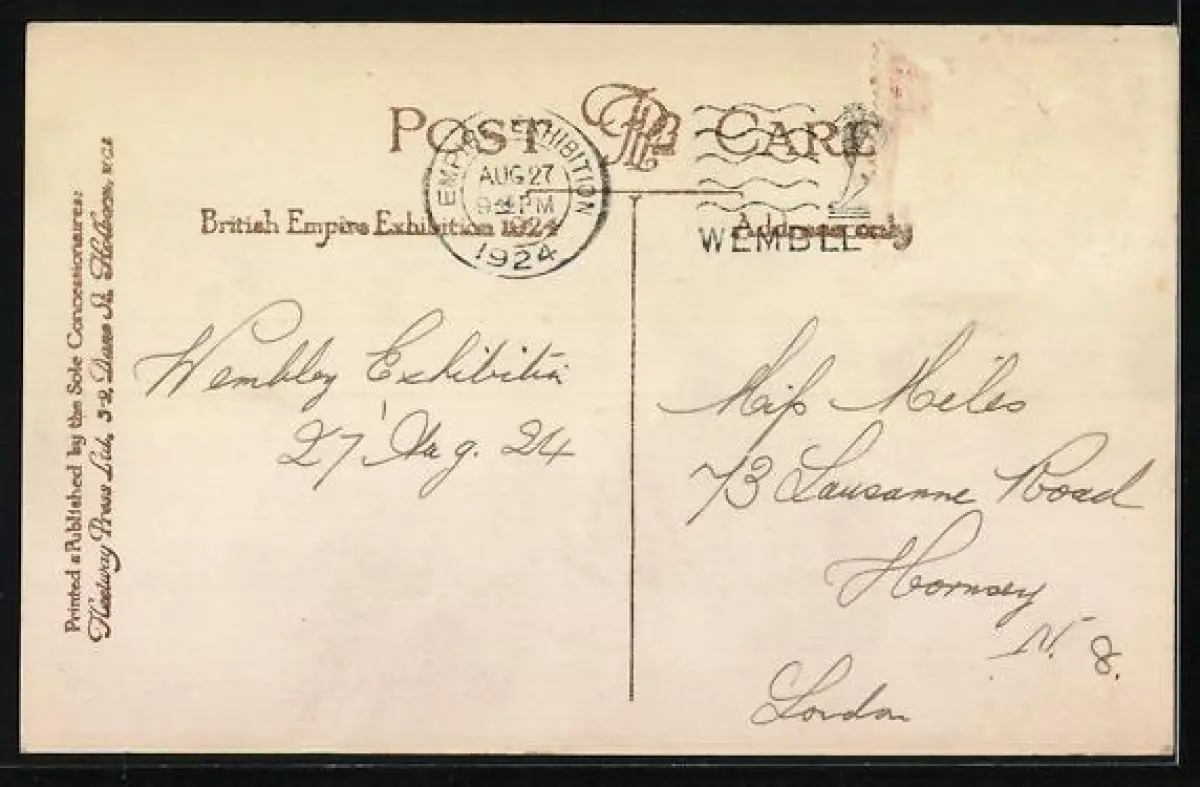 POST CARD
British Empire Exhibition 1924
Address only
EMPIRE EXHIBITION
AUG 27
PM
1924
WEMBLE
Printed & Published by the Sole Concessionaires:
Fleetway Press Ltd, 3-9, Dane St. Holborn, WC1
Wembley Exhibition
27 Aug. 24
Miss Miles
73 Lausanne Road
Hornsey
N. 8.
London